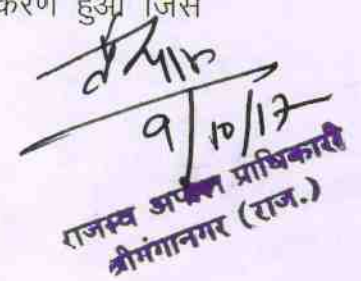 करण हुआ जिस
9/10/17
राजस्व अपील प्राधिकारी
श्रीगंगानगर (राज.)